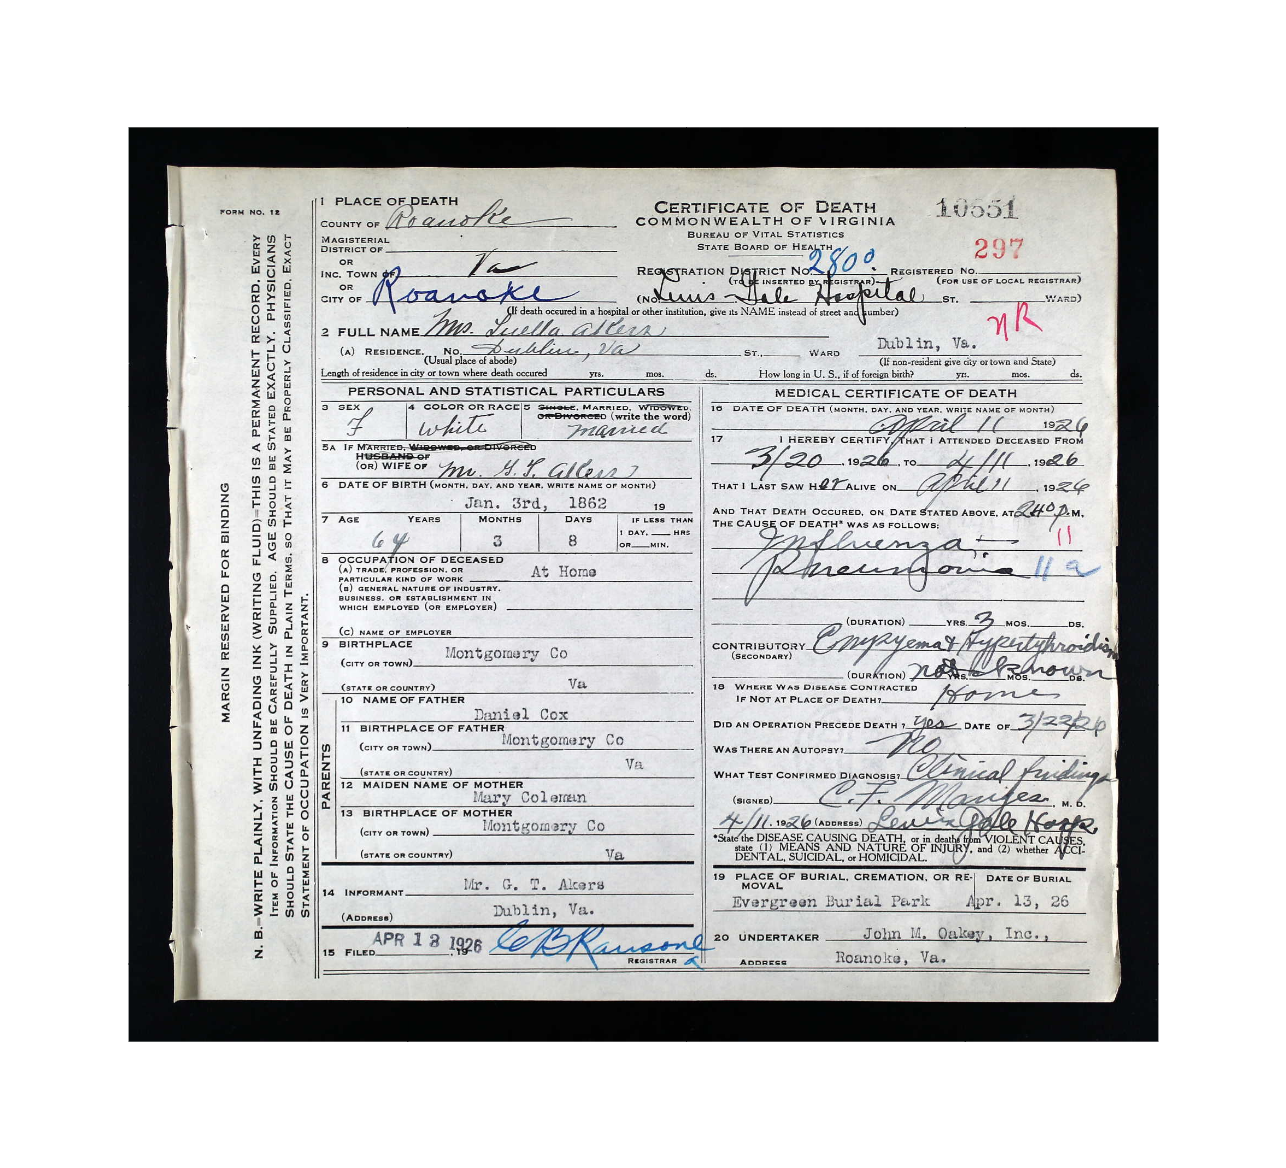 FORM NO. 12
MARGIN RESERVED FOR BINDING
N. B.—WRITE PLAINLY, WITH UNFADING INK (WRITING FLUID)—THIS IS A PERMANENT RECORD. EVERY
ITEM OF INFORMATION SHOULD BE CAREFULLY SUPPLIED. AGE SHOULD BE STATED EXACTLY. PHYSICIANS
SHOULD STATE THE CAUSE OF DEATH IN PLAIN TERMS, SO THAT IT MAY BE PROPERLY CLASSIFIED. EXACT
STATEMENT OF OCCUPATION IS VERY IMPORTANT.
1 PLACE OF DEATH
COUNTY OF Roanoke
MAGISTERIAL
DISTRICT OF
OR
INC. TOWN OF Va
OR
CITY OF Roanoke
CERTIFICATE OF DEATH
COMMONWEALTH OF VIRGINIA
BUREAU OF VITAL STATISTICS
STATE BOARD OF HEALTH
10551
297
REGISTRATION DISTRICT NO. 2800 REGISTERED NO.
(TO BE INSERTED BY REGISTRAR) (FOR USE OF LOCAL REGISTRAR)
(NO. Lewis-Gale Hospital ST. WARD)
(If death occured in a hospital or other institution, give its NAME instead of street and number)
NR
2 FULL NAME Mrs. Luella Akers
(A) RESIDENCE. No. Dublin, Va ST., WARD Dublin, Va.
(Usual place of abode) (If non-resident give city or town and State)
Length of residence in city or town where death occured yrs. mos. ds. How long in U. S., if of foreign birth? yrs. mos. ds.
PERSONAL AND STATISTICAL PARTICULARS
3 SEX F
4 COLOR OR RACE White
5 SINGLE, MARRIED, WIDOWED, OR DIVORCED (write the word) married
5A IF MARRIED, WIDOWED, OR DIVORCED
HUSBAND OF
(OR) WIFE OF Mr. G. T. Akers
6 DATE OF BIRTH (MONTH, DAY, AND YEAR, WRITE NAME OF MONTH)
Jan. 3rd, 1862 19
7 AGE YEARS MONTHS DAYS IF LESS THAN
1 DAY, HRS
OR MIN.
64 3 8
8 OCCUPATION OF DECEASED
(A) TRADE, PROFESSION, OR
PARTICULAR KIND OF WORK At Home
(B) GENERAL NATURE OF INDUSTRY,
BUSINESS, OR ESTABLISHMENT IN
WHICH EMPLOYED (OR EMPLOYER)
(C) NAME OF EMPLOYER
9 BIRTHPLACE
(CITY OR TOWN) Montgomery Co
(STATE OR COUNTRY) Va
PARENTS
10 NAME OF FATHER
Daniel Cox
11 BIRTHPLACE OF FATHER
(CITY OR TOWN) Montgomery Co
(STATE OR COUNTRY) Va
12 MAIDEN NAME OF MOTHER
Mary Coleman
13 BIRTHPLACE OF MOTHER
(CITY OR TOWN) Montgomery Co
(STATE OR COUNTRY) Va
14 INFORMANT Mr. G. T. Akers
(ADDRESS) Dublin, Va.
15 FILED APR 13 1926, 19 C B Ransone
REGISTRAR
MEDICAL CERTIFICATE OF DEATH
16 DATE OF DEATH (MONTH, DAY, AND YEAR, WRITE NAME OF MONTH)
April 11 1926
17 I HEREBY CERTIFY, THAT I ATTENDED DECEASED FROM
3/20, 1926, TO 4/11, 1926
THAT I LAST SAW HER ALIVE ON April 11, 1926
AND THAT DEATH OCCURED, ON DATE STATED ABOVE, AT 240 P.M.
THE CAUSE OF DEATH* WAS AS FOLLOWS:
Influenza + 11
Pneumonia 11a
(DURATION) YRS. 3 MOS. DS.
CONTRIBUTORY Empyema & Hyperthyroidism
(SECONDARY)
(DURATION) not known YRS. MOS. DS.
18 WHERE WAS DISEASE CONTRACTED
IF NOT AT PLACE OF DEATH? Home
DID AN OPERATION PRECEDE DEATH? yes DATE OF 3/22/26
WAS THERE AN AUTOPSY? No
WHAT TEST CONFIRMED DIAGNOSIS? Clinical findings
(SIGNED) C. F. Manges, M. D.
4/11, 1926 (ADDRESS) Lewis Gale Hosp.
*State the DISEASE CAUSING DEATH, or in deaths from VIOLENT CAUSES,
state (1) MEANS AND NATURE OF INJURY, and (2) whether ACCI-
DENTAL, SUICIDAL, or HOMICIDAL.
19 PLACE OF BURIAL, CREMATION, OR RE- DATE OF BURIAL
MOVAL
Evergreen Burial Park Apr. 13, 26
20 UNDERTAKER John M. Oakey, Inc.,
ADDRESS Roanoke, Va.